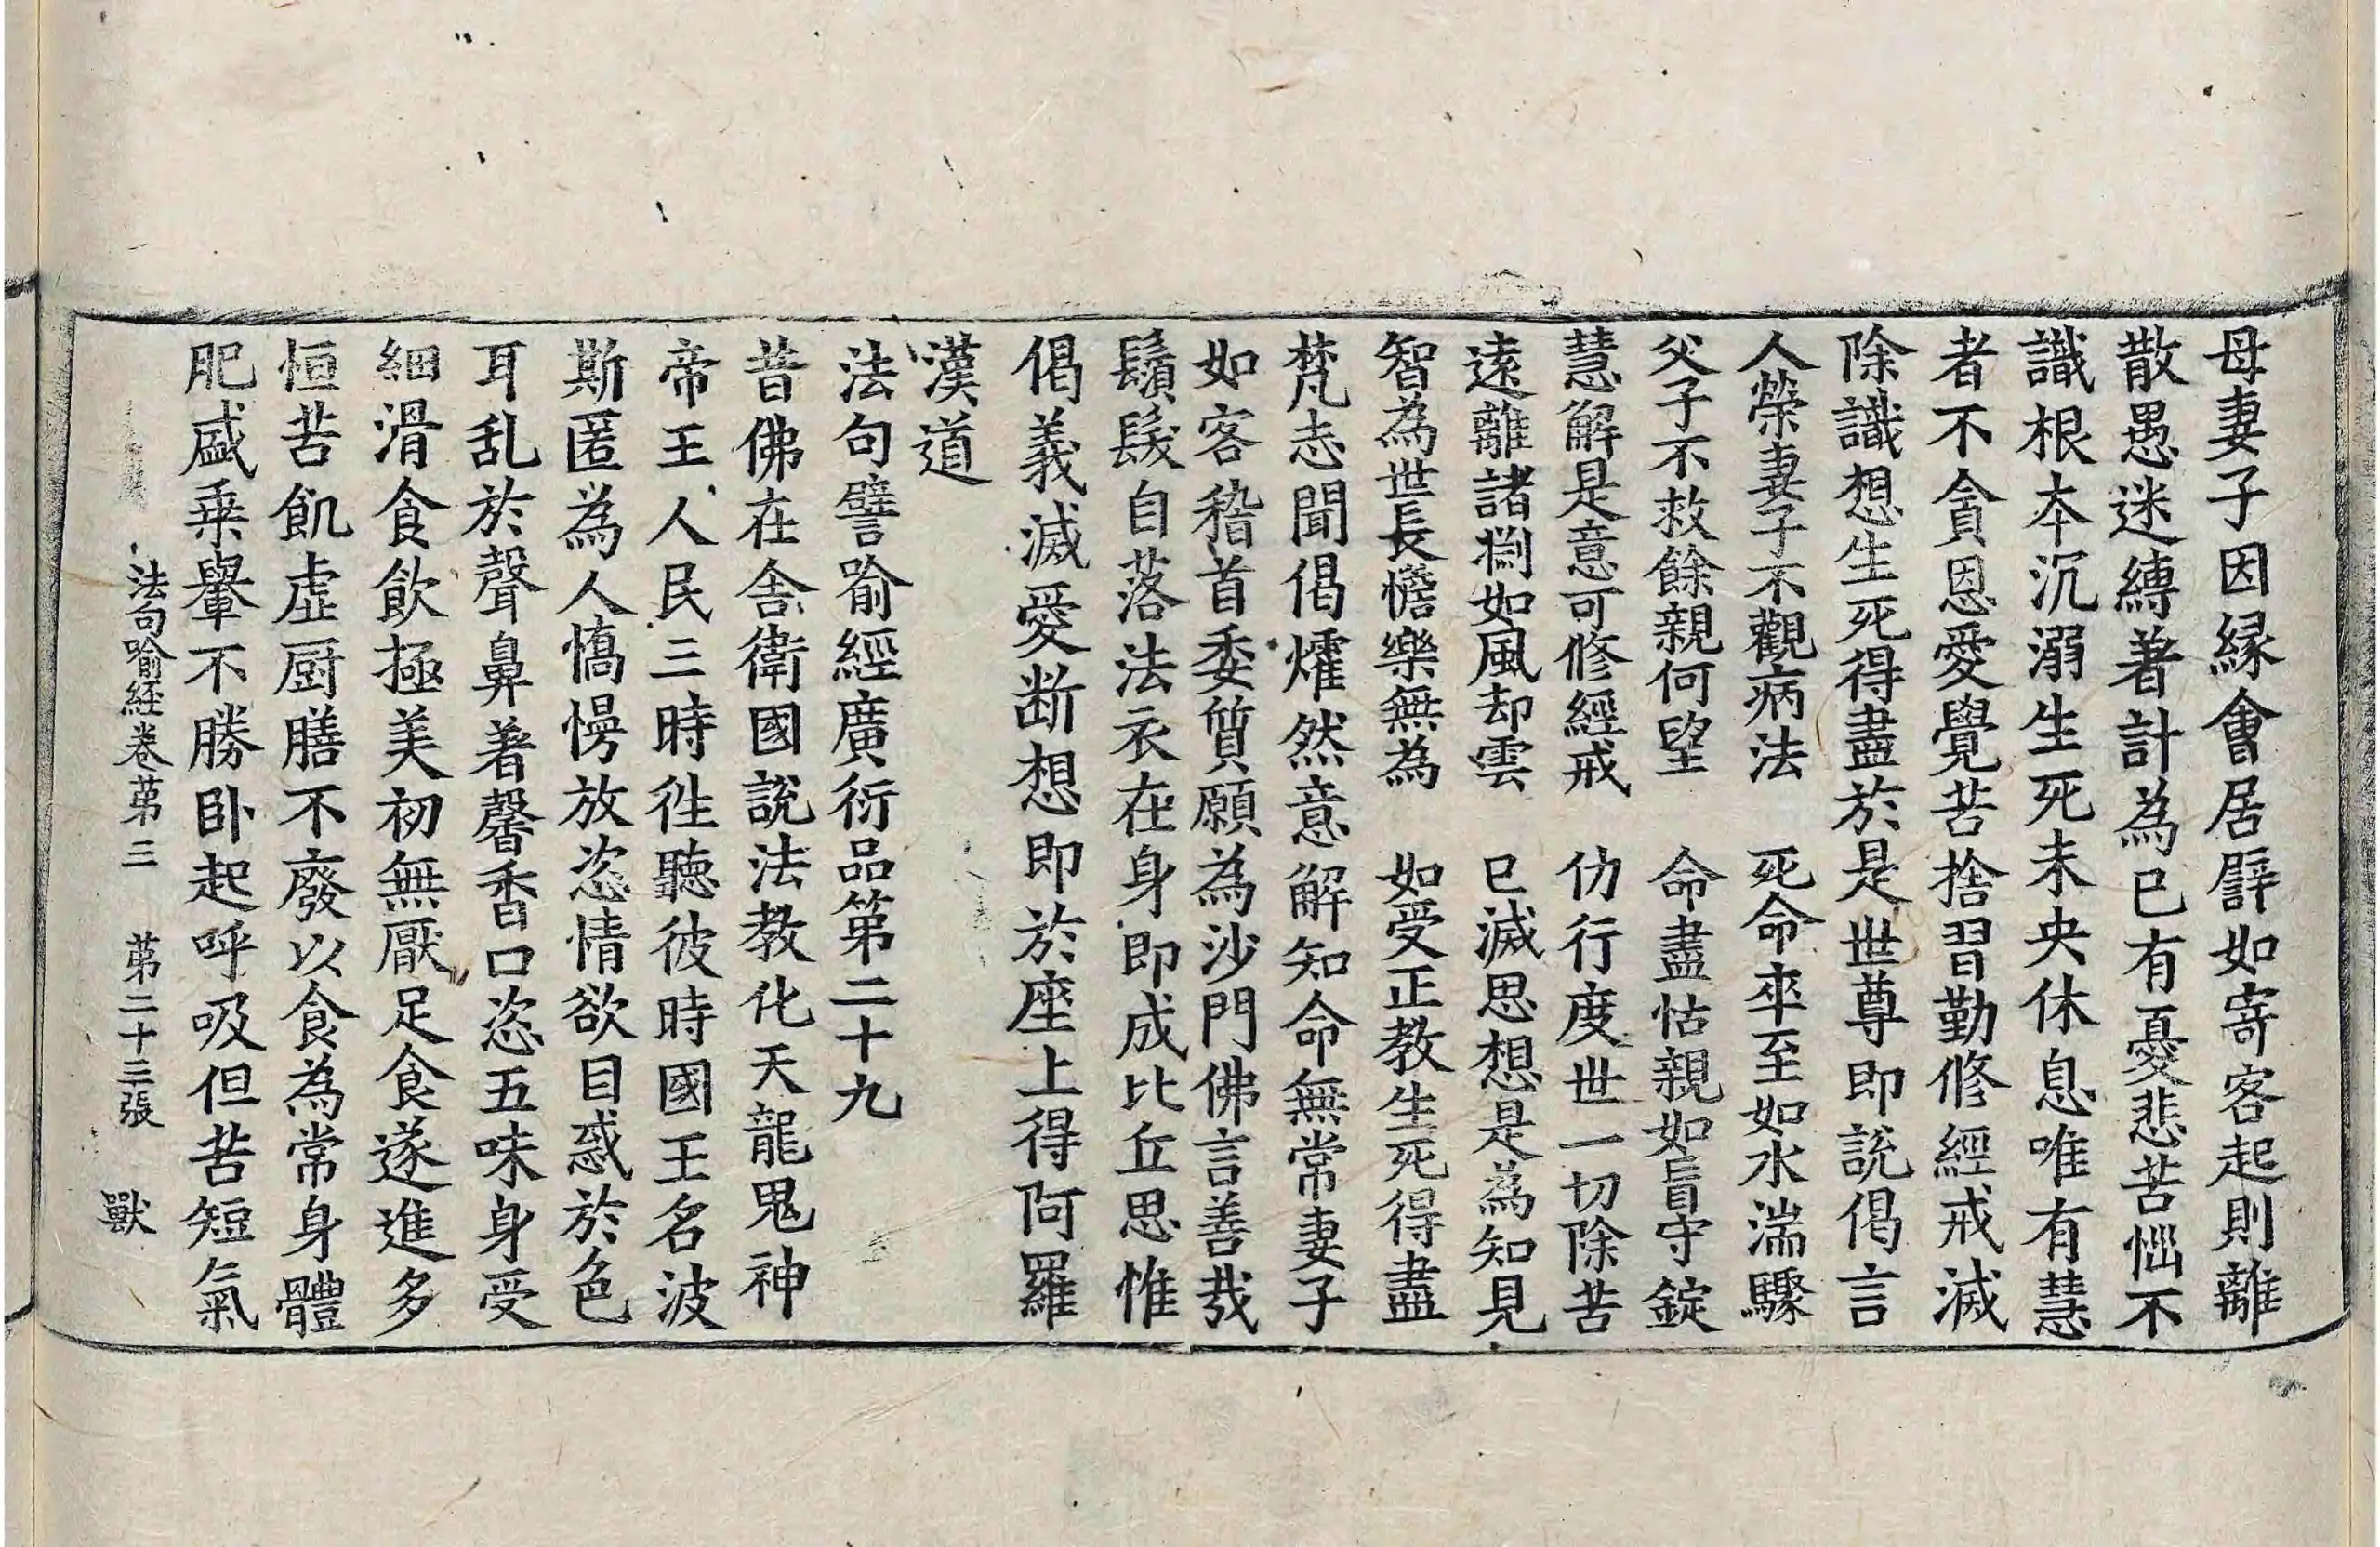 母妻子因縁會居譬如寄客起則離
散愚迷縛著計為已有憂悲苦惱不
識根本沉溺生死未央休息唯有慧
者不貪恩愛覺苦捨習勤修經戒滅
除識想生死得盡於是世尊即說偈言
人榮妻子不觀病法　死命卒至如水湍驟
父子不救餘親何望　命盡怙親如盲守錠
慧解是意可修經戒　仂行度世一切除苦
遠離諸淵如風却雲　已滅思想是為知見
智為世長惔樂無為　如受正教生死得盡
梵志聞偈㸌然意解知命無常妻子
如客稽首委質願為沙門佛言善哉
鬚髮自落法衣在身即成比丘思惟
偈義滅愛断想即於座上得阿羅
漢道
法句譬喻經廣衍品第二十九
昔佛在舍衛國說法教化天龍鬼神
帝王人民三時徃聽彼時國王名波
斯匿為人憍慢放恣情欲目惑於色
耳乱於聲鼻著馨香口恣五味身受
細滑食飲極美初無厭足食遂進多
恒苦飢虛厨膳不廢以食為常身體
肥盛乗轝不勝卧起呼吸但苦短氣
法句喻經卷苐三　苐二十三張　獸